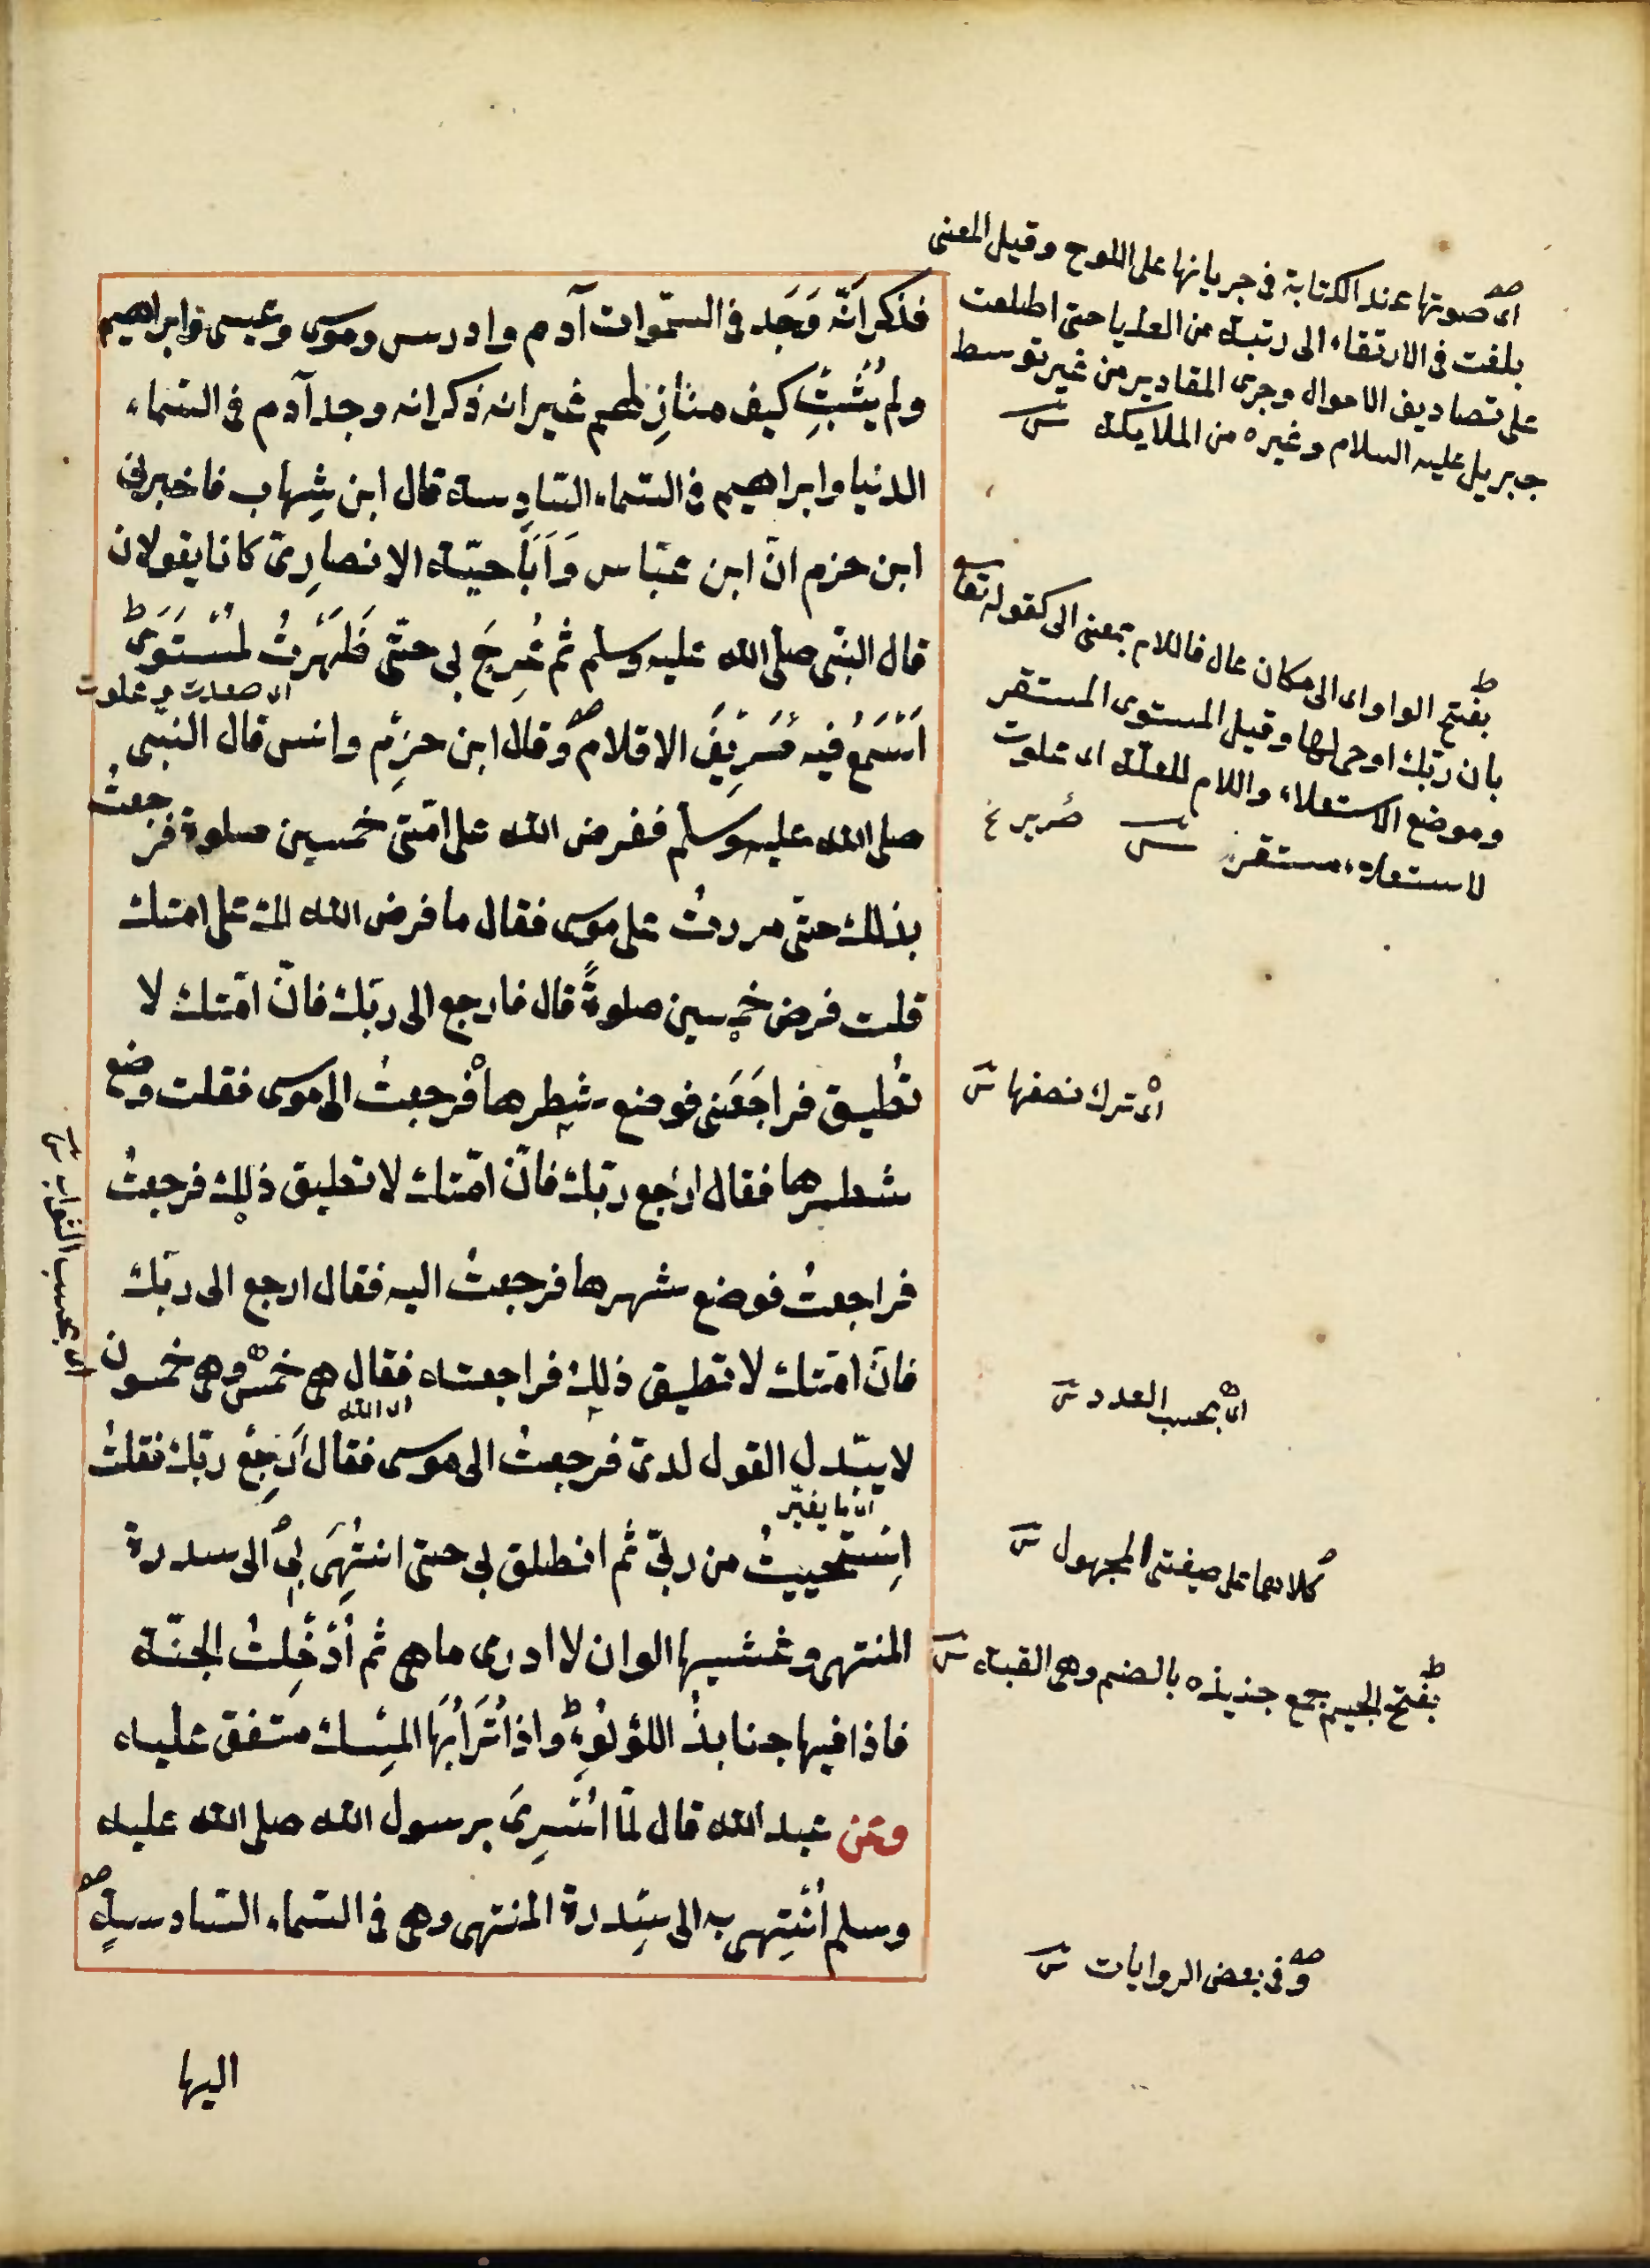 فذكر اَنّه وَجَد في السّموات آدم وادريس وموسى وعيسى وابراهيم
ولم يُثْبِتْ كيف منازِلهم غير انه ذكر انه وجد آدم في السّماء
الدنيا وابراهيم في السّماء السّادِسة قال ابن شِهاب فاخبرني
ابن حزم انّ ابن عبّاس وَاَبَا حيّة الانصاريّ كانا يقولان
قال النبّي صلى الله عليه وسلم ثم عُرِجَ بي حتّى ظَهَرْتُ لمُسْتَوَى
اى صعدت وعلوت
اَسْمَعُ فيه صَرِيْفَ الاقلام وقال ابن حزم وانس قال النبّي
صلى الله عليه وسلم ففرض الله على امّتي خمسين صلوة فرجعتُ
بذلك حتّى مررتُ على موسى فقال ما فرض الله لك على امتك
قلت فرض خمسين صلوةً قال فارجع الى ربّك فانّ امّتك لا
تُطيق فراجَعَني فوضع شطرها فرجعتُ الى موسى فقلت وضع
شطرها فقال ارجع ربّك فانّ امّتك لا تطيق ذلك فرجعتُ
فراجعتُ فوضع شهرها فرجعتُ اليه فقال ارجع الى ربّك
فانّ امّتك لا تطيق ذلك فراجعته فقال هي خمس وهي خمسون
اى الله
لا يبّدل القول لديّ فرجعتُ الى موسى فقال اَرجِعْ ربّك فقلتُ
اى ما يغيّر
اِسْتحييتُ من ربّي ثم انطلق بي حتى انتُهِىَ بي الى سدرة
المنتهى وغشيها الوان لا ادرى ما هي ثم أُدْخِلتُ الجنّة
فاذا فيها جنابذُ اللؤلُؤِ واذا تُرَابُهَا المِسْك متفق عليه
وعن عبد الله قال لمّا اُسْرِىَ برسول الله صلى الله عليه
وسلم اُنْتِهىَ به الى سِدرة المنتهى وهي في السّماء السّادسة
اليها
اى صوتها عند الكتابة في جريانها على اللوح وقيل المعنى
بلغت في الارتقاء الى رتبة من العليا حتى اطلعت
على تصاريف الاحوال وجرى المقادير من غير توسط
جبريل عليه السلام وغيره من الملايكة ش
بفتح الواو اى الى مكان عال فاللام بمعنى الى كقوله تعا
بان ربّك اوحى لها وقيل المستوى المستقر
وموضع الاستعلاء واللام للعلّة اى علوت
لاستعلاء مستقر ش صرير خ
اى ترك نصفها ش
اى بحسب العدد ش
اى بحسب الثواب ش
كلاهما على صيغتى المجهول ش
بفتح الجيم جمع جنبذه بالضم وهي القبة ش
وفي بعض الروايات ش